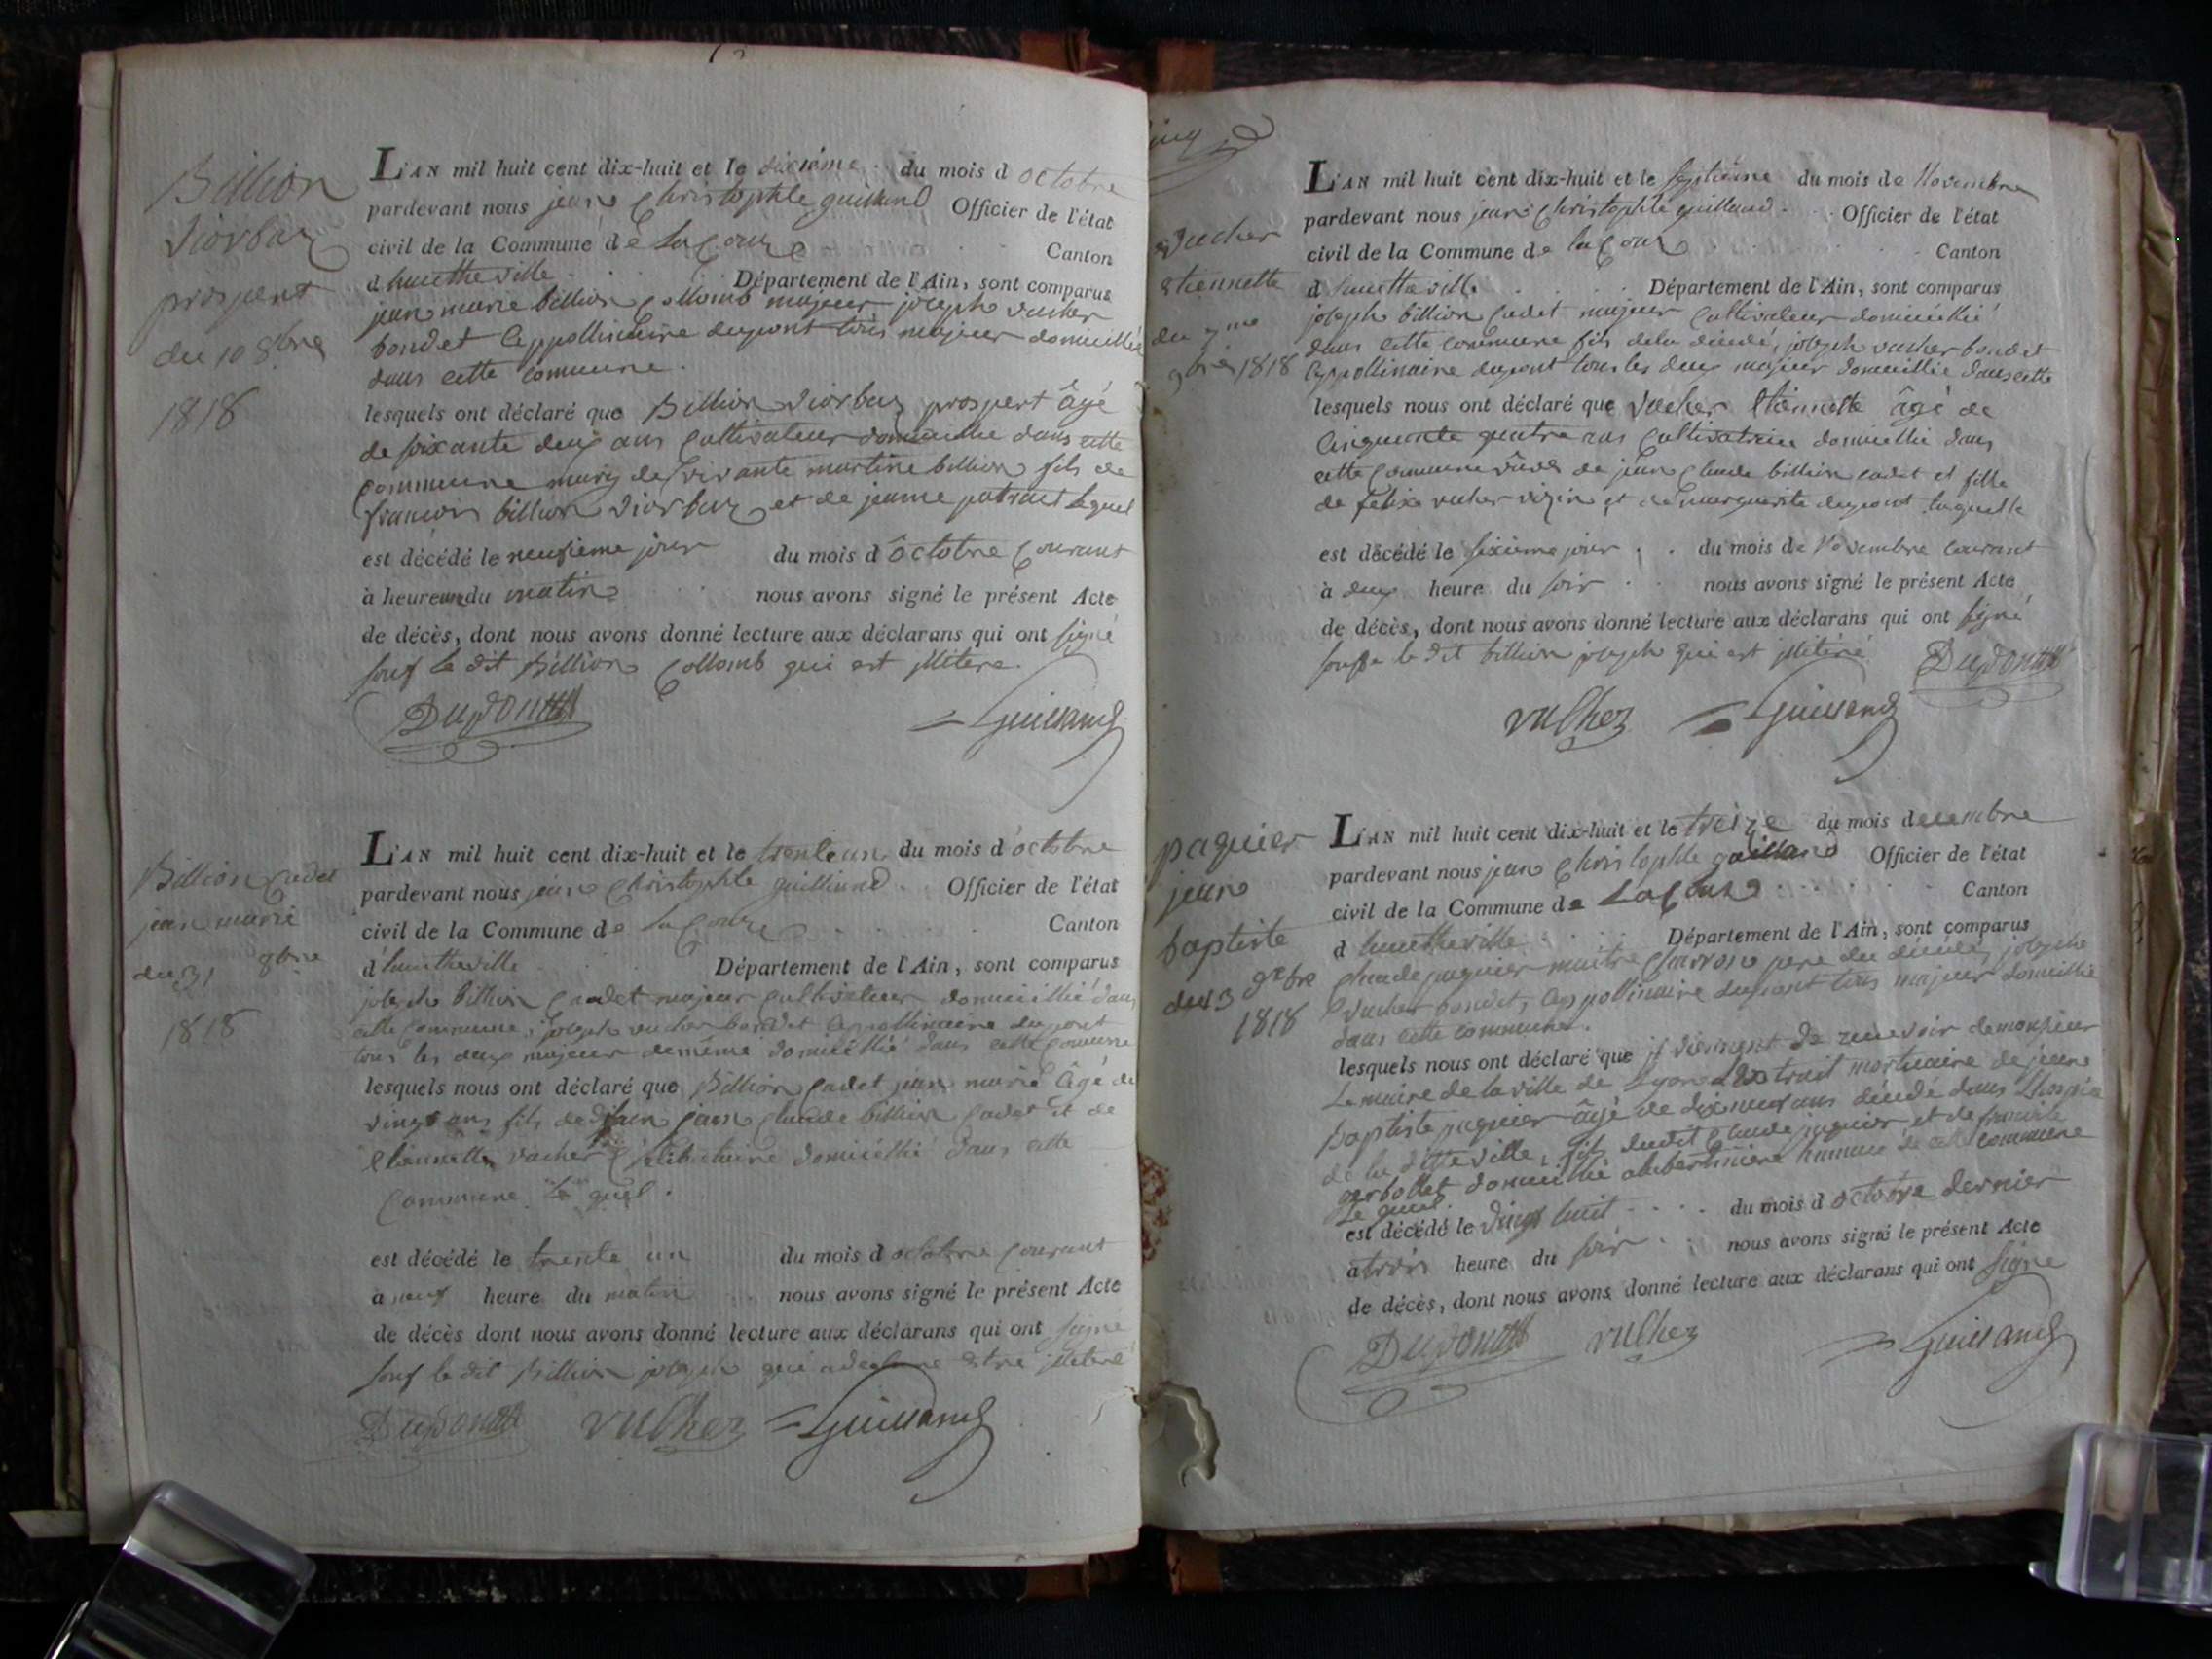 Billion
Viorbuz
prospert
du 10 8bre
1818
L'AN mil huit cent dix-huit et le dixième du mois d octobre
pardevant nous jean Christophle guilland Officier de l'état
civil de la Commune de la Coux Canton
d hautheville Département de l'Ain, sont comparus
jean marie billion Collomb majeur joseph vucher
bondet appollinaire dupont tous majeur domicillié
dans cette commune.
lesquels ont déclaré que Billion prospert âgé
de soixante deux ans Cultivateur domicillié dans cette
commune mary de vivante martine billion fils de
francois billion et de jeanne lequel
est décédé le neufieme jour du mois d octobre Courant
à heure du matin nous avons signé le présent Acte
de décès, dont nous avons donné lecture aux déclarans qui ont signé
souf le dit Billion Collomb qui est illitere.
Dupont Guilland
Billion Cadet
jean marie
du 31 8bre
1818
L'AN mil huit cent dix-huit et le trente un du mois d'octobre
pardevant nous jean Christophle guilliand Officier de l'état
civil de la Commune de la Coux Canton
d'hautheville Département de l'Ain, sont comparus
joseph billion Cadet majeur Cultivateur domicillié dans
cette commune, joseph vucher bondet appollinaire dupont
tous les deux majeur demême domicillié dans cette Commune
lesquels nous ont déclaré que Billion Cadet jean marie âgé de
vingt ans fils de jean Claude billion Cadet et de
Etiennette vucher Célibataire domicillié dans cette
Commune le quel.
est décédé le trente un du mois d octobre Courant
à neuf heure du matin nous avons signé le présent Acte
de décès dont nous avons donné lecture aux déclarans qui ont signé
souf le dit Billion joseph qui a declare etre illiteré
Dupont vuCher Guilland
Vucher
etiennette
du 7me
9bre 1818
L'AN mil huit cent dix-huit et le septième du mois de Novembre
pardevant nous jean Christophle guilland Officier de l'état
civil de la Commune de la Coux Canton
d hautheville Département de l'Ain, sont comparus
joseph billion Cadet majeur Cultivateur domicillié
dans cette commune fils dela décédé, joseph vucher bondet
appollinaire dupont tous les deux majeur domicillié dans cette
lesquels nous ont déclaré que Vucher Etiennette âgé de
Cinquante quatre ans Cultivatrice domicillié dans
cette Commune de jean Claude billion cadet et fille
de felix vucher et de marguerite dupont laquelle
est décédé le sixieme jour du mois de Novembre courant
à deux heure du soir nous avons signé le présent Acte
de décès, dont nous avons donné lecture aux déclarans qui ont signé
le dit billion joseph qui est illiteré
Dupont
vuCher Guilland
paquier
jean
baptiste
du 13
1818
L'AN mil huit cent dix-huit et le treize du mois decembre
pardevant nous jean Christophle guilland Officier de l'état
civil de la Commune de la Coux Canton
d hautheville Département de l'Ain, sont comparus
Claude paquier maitre Charron pere du décédé, joseph
Vucher bondet, appollinaire dupont tous majeur domicillié
dans cette commune.
lesquels nous ont déclaré que viennent de recevoir de monsieur
Le maire de la ville de Lyon extrait mortuaire de jean
baptiste paquier âgé de dix neuf ans décédé dans
de la ditte ville, fils dudit Claude paquier et de
domicillié hameau de cette commune
Le quel.
est décédé le vingt huit du mois d octobre dernier
a trois heure du soir nous avons signé le présent Acte
de décès, dont nous avons donné lecture aux déclarans qui ont signé
Dupont vuCher Guilland